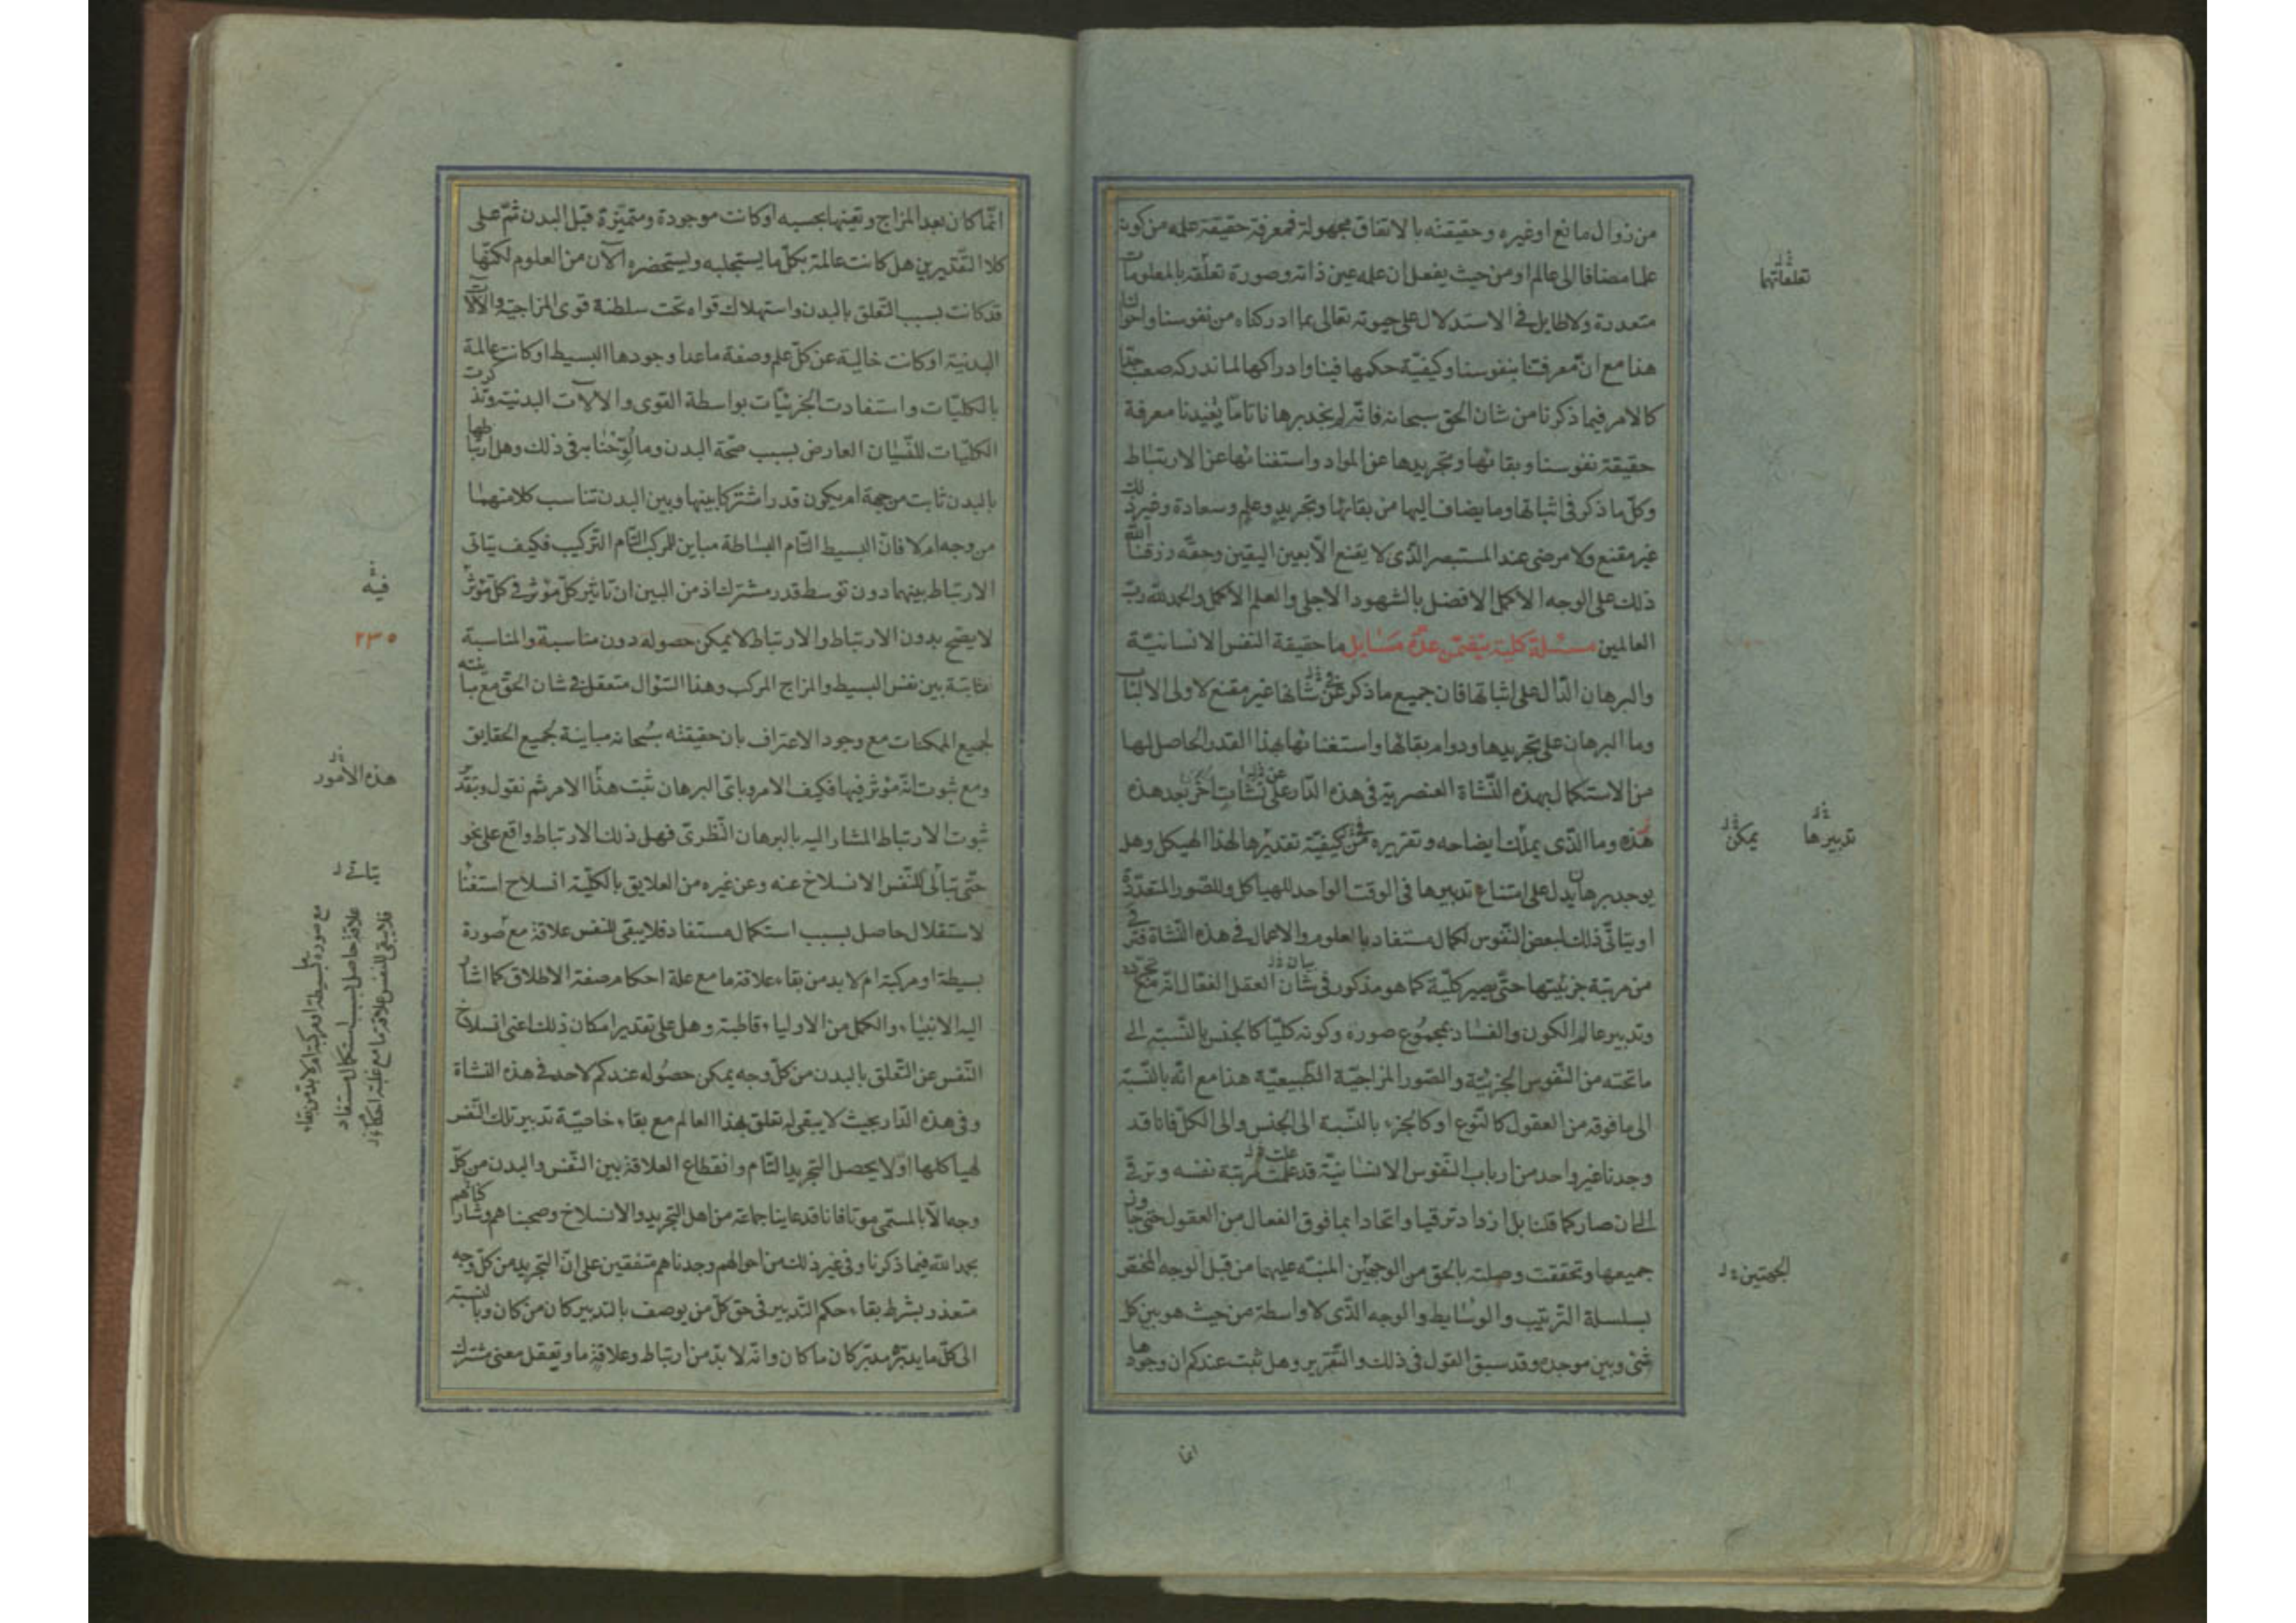 من زوال مانع او غيره وحقيقته بالاتفاق مجهولة فمعرفة حقيقة علمه من كونه
علما مضافا الى عالم او من حيث يفعل ان علمه عين ذاته وصورة تعلّقه بالمعلومات
متعذرة ولا طايل فى الاستدلال على حيوته تعالى بما ادركناه من نفوسنا واحوالنا
هذا مع انّ معرفتنا بنفوسنا وكيفيّة حكمها فينا وادراكها لما ندركه صعب جدا
كالامر فيما ذكرنا من شان الحق سبحانه فانّه لم نجد برهانا تامّا يُفيدنا معرفة
حقيقة نفوسنا وبقائها وتجريدها عن المواد واستغنائها عن الارتباط
وكلّ ما ذكر فى اثباتها وما يضاف اليها من بقائها وتجريد وعلم وسعادة وغير ذلك
غير مقنع ولا مرضى عند المستبصر الذّى لا يقنع الّا بعين اليقين وحقّه رزقنا الله
ذلك على الوجه الاكمل الافضل بالشهود الاجلى والعلم الاكمل والحمد لله ربّ
العالمين مسئلة كلية يتضمّن عدّة مسايل ما حقيقة النفس الانسانيّة
والبرهان الدّال على اثباتها فان جميع ما ذكر عن شانها غير مقنع لاولى الالباب
وما البرهان على تجريدها ودوام بقائها واستغنائها بهذا القدر الحاصل لها
من الاستكمال بهذه النّشاة العنصرية فى هذه الدّار على نشات اخر بعد هذه
هذه وما الذّى يملك ايضاحه وتقريره من كيفيّة تقديرها لهذا الهيكل وهل
يوجد برهان يدل على امتناع تدبيرها فى الوقت الواحد للهياكل وللصّور المتعدّدة
او يتاتّى ذلك لبعض النّفوس لكمال مستفاد بالعلوم والاعمال فى هذه النّشاة فترقى
من مرتبة جزئيتها حتّى يصير كلّية كما هو مذكور فى شان العقل الفعّال انّه مع تجرّده
وتدبير عالم الكون والفساد بمجموع صوره وكونه كليّا كالجنس بالنّسبة الى
ما تحته من النّفوس الجزئيّة والصّور المزاجيّة الطّبيعيّة هذا مع انّه بالنّسبة
الى ما فوقه من العقول كالنّوع او كالجزء بالنّسبة الى الجنس والى الكلّ فانا قد
وجدنا غير واحد من ارباب النّفوس الانسانيّة قد علمت مرتبة نفسه وترقى
الى ان صار كما قلنا بل ازداد ترقيا واتحادا بما فوق الفعال من العقول حتى جاوز
جميعها وتحققت وصلته بالحق من الوجهين المنبّه عليهما من قبل الوجه المختصّ
بسلسلة التّرتيب والوسايط والوجه الذّى لا واسطة من حيث هو بين كل
شئ وبين موجده وقد سبق القول فى ذلك والتّقرير وهل ثبت عندكم ان وجودها
تعلقاتها
تدبيرها يمكن
الجهتين
انما
انّما كان بعد المزاج وتعيّنها بحسبه او كانت موجودة ومتميّزة قبل البدن ثمّ على
كلا التّقديرين هل كانت عالمة بكلّ ما يستجلبه ويستحضره الآن من العلوم لكنّها
قد كانت بسبب التّعلق بالبدن واستهلاك قواه تحت سلطنة قوى المزاجيّة والآلات
البدنيّة او كانت خالية عن كلّ علم وصفة ما عدا وجودها البسيط او كانت عالمة
بالكليّات واستفادت الجزئيّات بواسطة القوى والآلات البدنية وتذكرت
الكليّات للنّسيان العارض بسبب صحّة البدن وما لوّحنا به فى ذلك وهل ارتباطها
بالبدن ثابت من جهة امر يكون قدرا مشتركا بينها وبين البدن تناسب كلا منهما
من وجه ام لا فانّ البسيط التّام البساطة مباين للمركب التّام التّركيب فكيف يتاتى
الارتباط بينهما دون توسط قدر مشترك اذ من البين ان تاثير كلّ مؤثر فى كلّ مؤثر
لا يصّح بدون الارتباط والارتباط لا يمكن حصوله دون مناسبة والمناسبة
ثابتة بين نفس البسيط والمزاج المركب وهذا السّؤال متعقل فى شان الحقّ مع مباينته
لجميع الممكنات مع وجود الاعتراف بان حقيقته سُبحانه مباينة لجميع الحقايق
ومع ثبوت انّه مؤثر فيها فكيف الامر وباىّ البرهان ثبت هذا الامر ثم نقول وبتقدير
ثبوت الارتباط المشار اليه بالبرهان النّظرىّ فهل ذلك الارتباط واقع على نحو
حتّى يتاتى للنّفس الانسلاخ عنه وعن غيره من العلايق بالكلّية انسلاخ استغنا
لاستقلال حاصل بسبب استكمال مستفاد فلا يبقى للنفس علاقة مع صورة
بسيطة او مركبة ام لا بد من بقاء علاقة ما مع علة احكام صفة الاطلاق كما اشار
اليه الانبياء والكمل من الاولياء قاطبة وهل على تقدير امكان ذلك اعنى انسلاخ
النّفس عن التّعلق بالبدن من كلّ وجه يمكن حصُوله عندكم لاحد فى هذه النشاة
وفى هذه الدّار بحيث لا يبقى له تعلق بهذا العالم مع بقاء خاصيّة تدبير تلك النّفس
لهياكلها او لا يحصل التجريد التّام وانقطاع العلاقة بين النّفس والبدن من كلّ
وجه الّا بالمسمّى موتا فانا قد عاينا جماعة من اهل التّجريد والانسلاخ وصحبناهم وشاركناهم
بحمد الله فيما ذكرنا وفى غير ذلك من احوالهم وجدناهم متفقين على انّ التّجريد من كلّ وجه
متعذر بشرط بقاء حكم التّدبير فى حق كلّ من يوصف بالتدبير كان من كان وبالنسبة
الى كلّ ما يدبّره مدبّر كان ما كان وانّه لا بدّ من ارتباط وعلاقةٍ ما وتعقل معنى مشترك
فيه
٢٣٥
هذه الامور
يتاتى
فلا يبقى للنفس علاقة ما مع غلبة احكام
علاقة حاصل بسبب استكمال مستفاد
مع صورة بسيطة او مركبة ام لا بد من بقاء